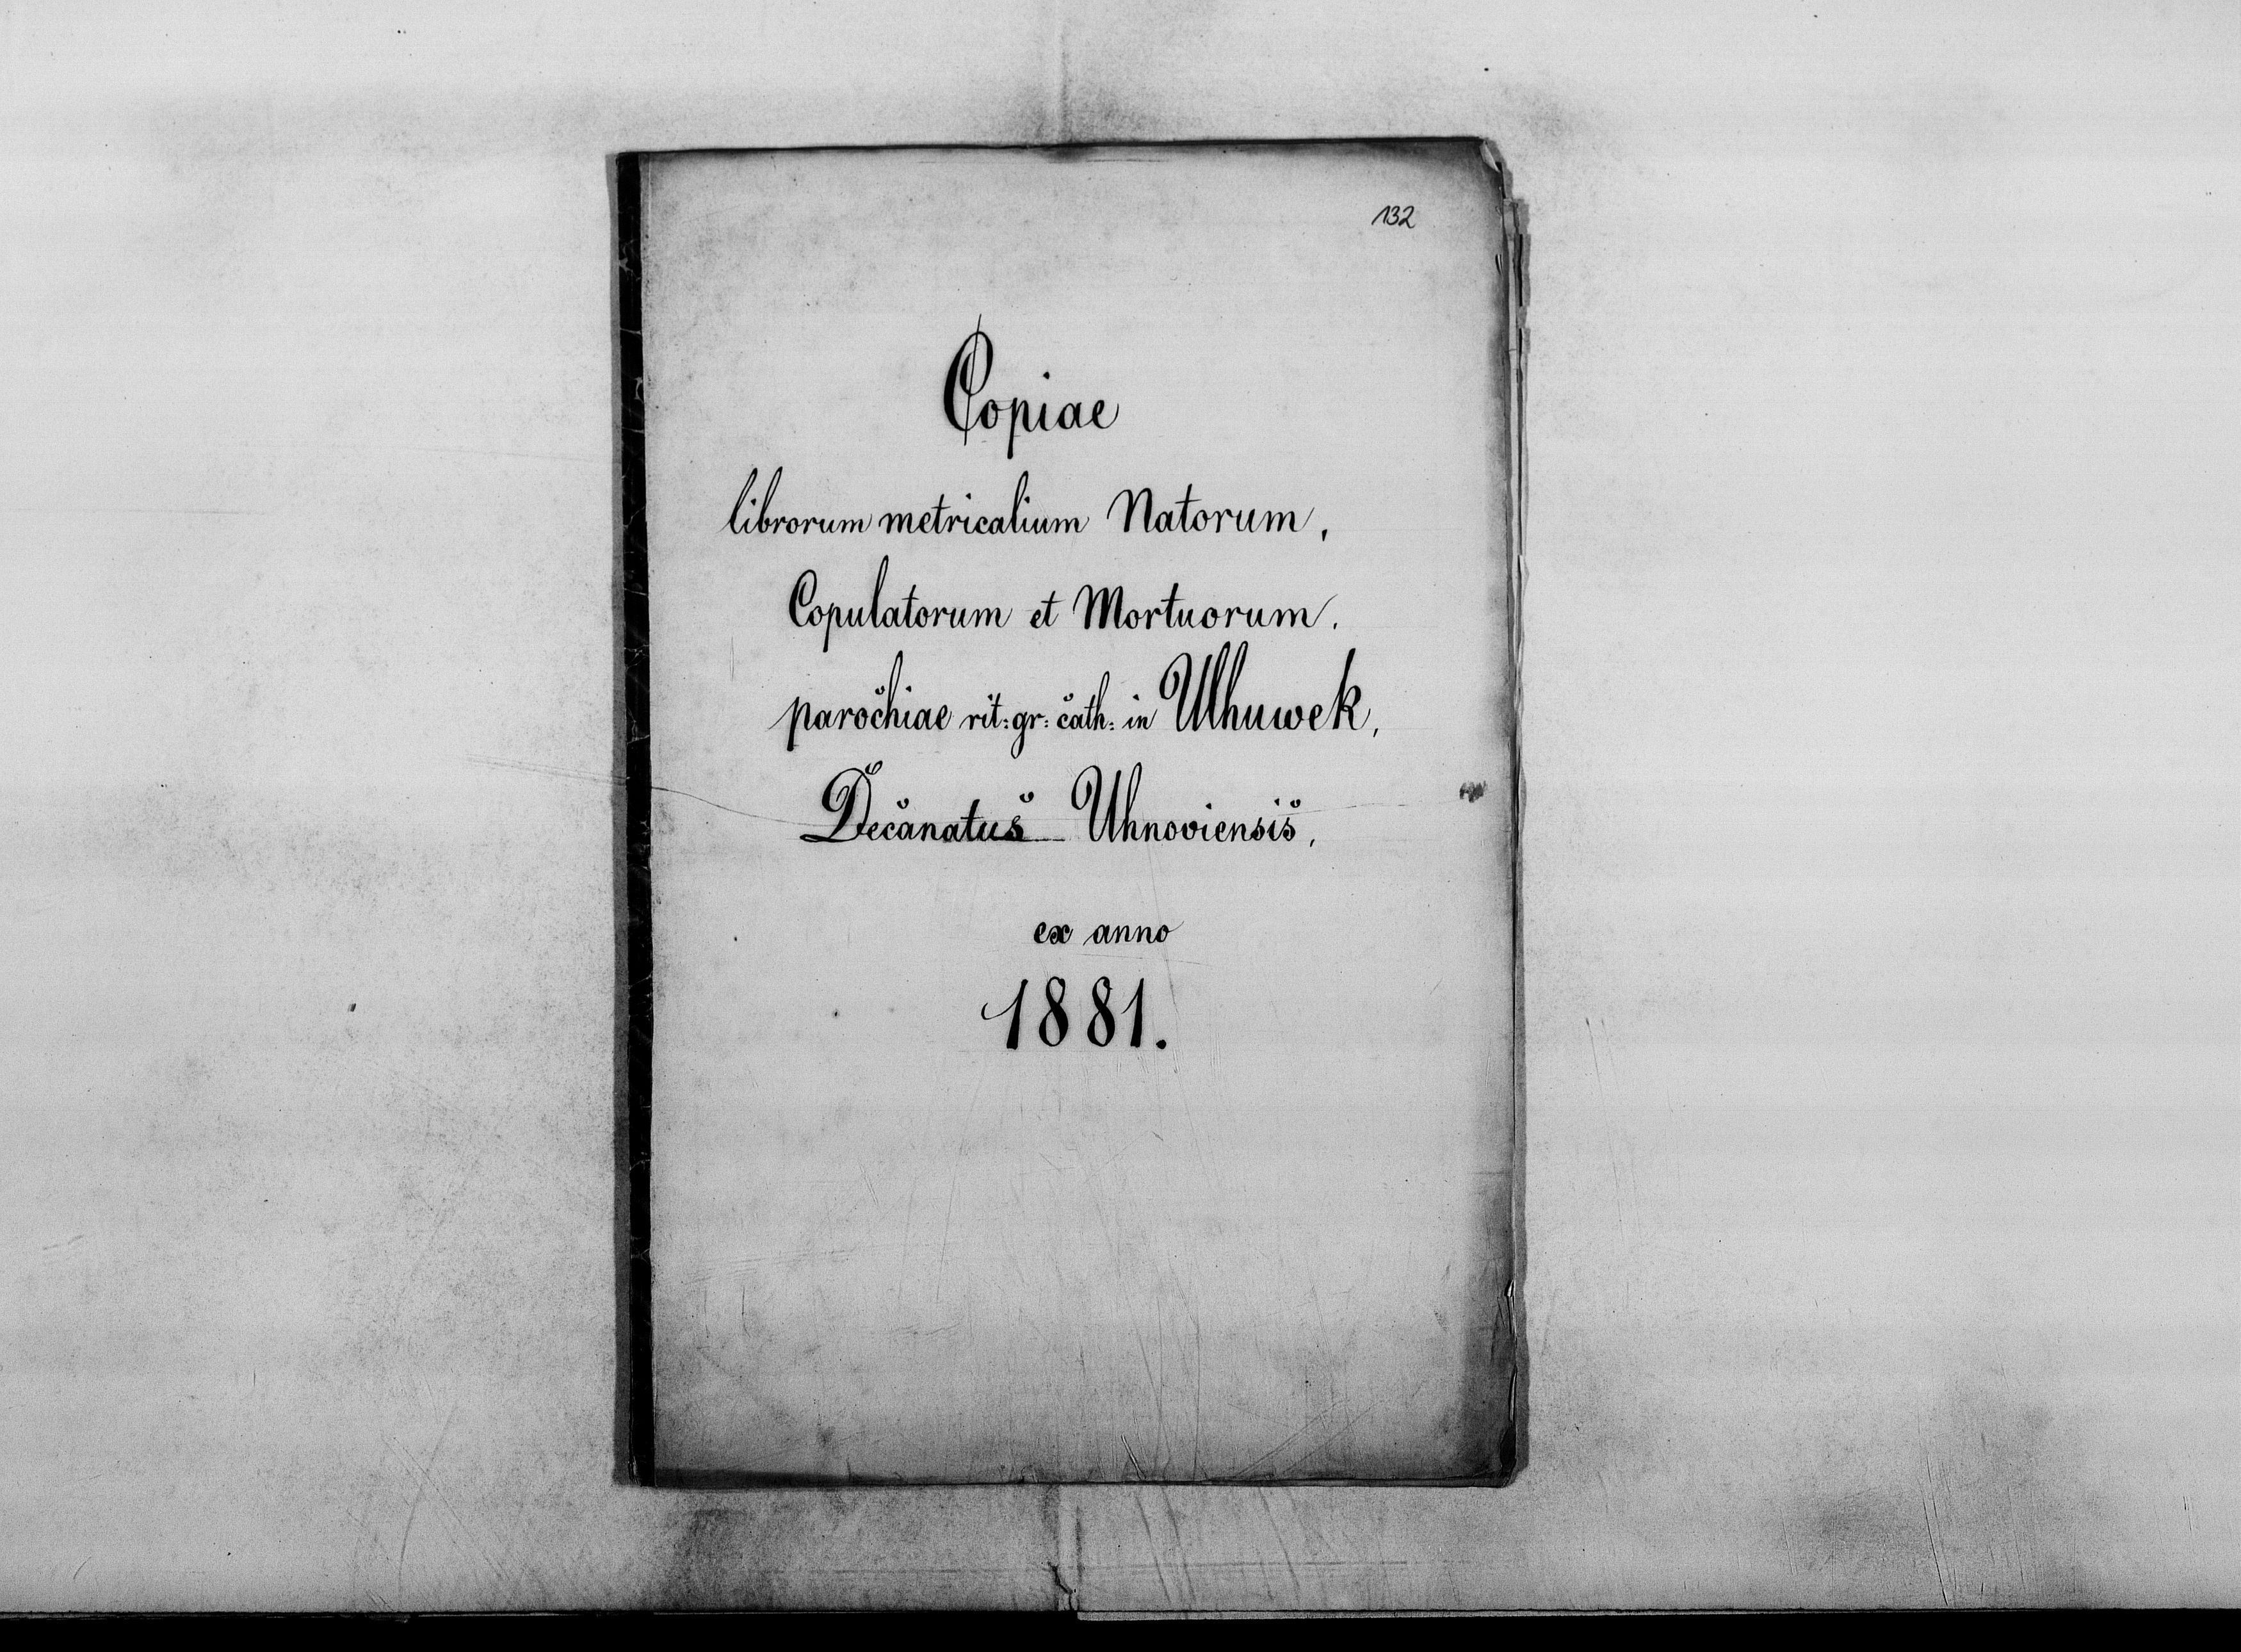 132
Copiae
librorum metricalium Natorum,
Copulatorum et Mortuorum.
parochiae rit: gr: cath: in Ulhuwek,
Decanatus Uhnoviensis,
ex anno
1881.